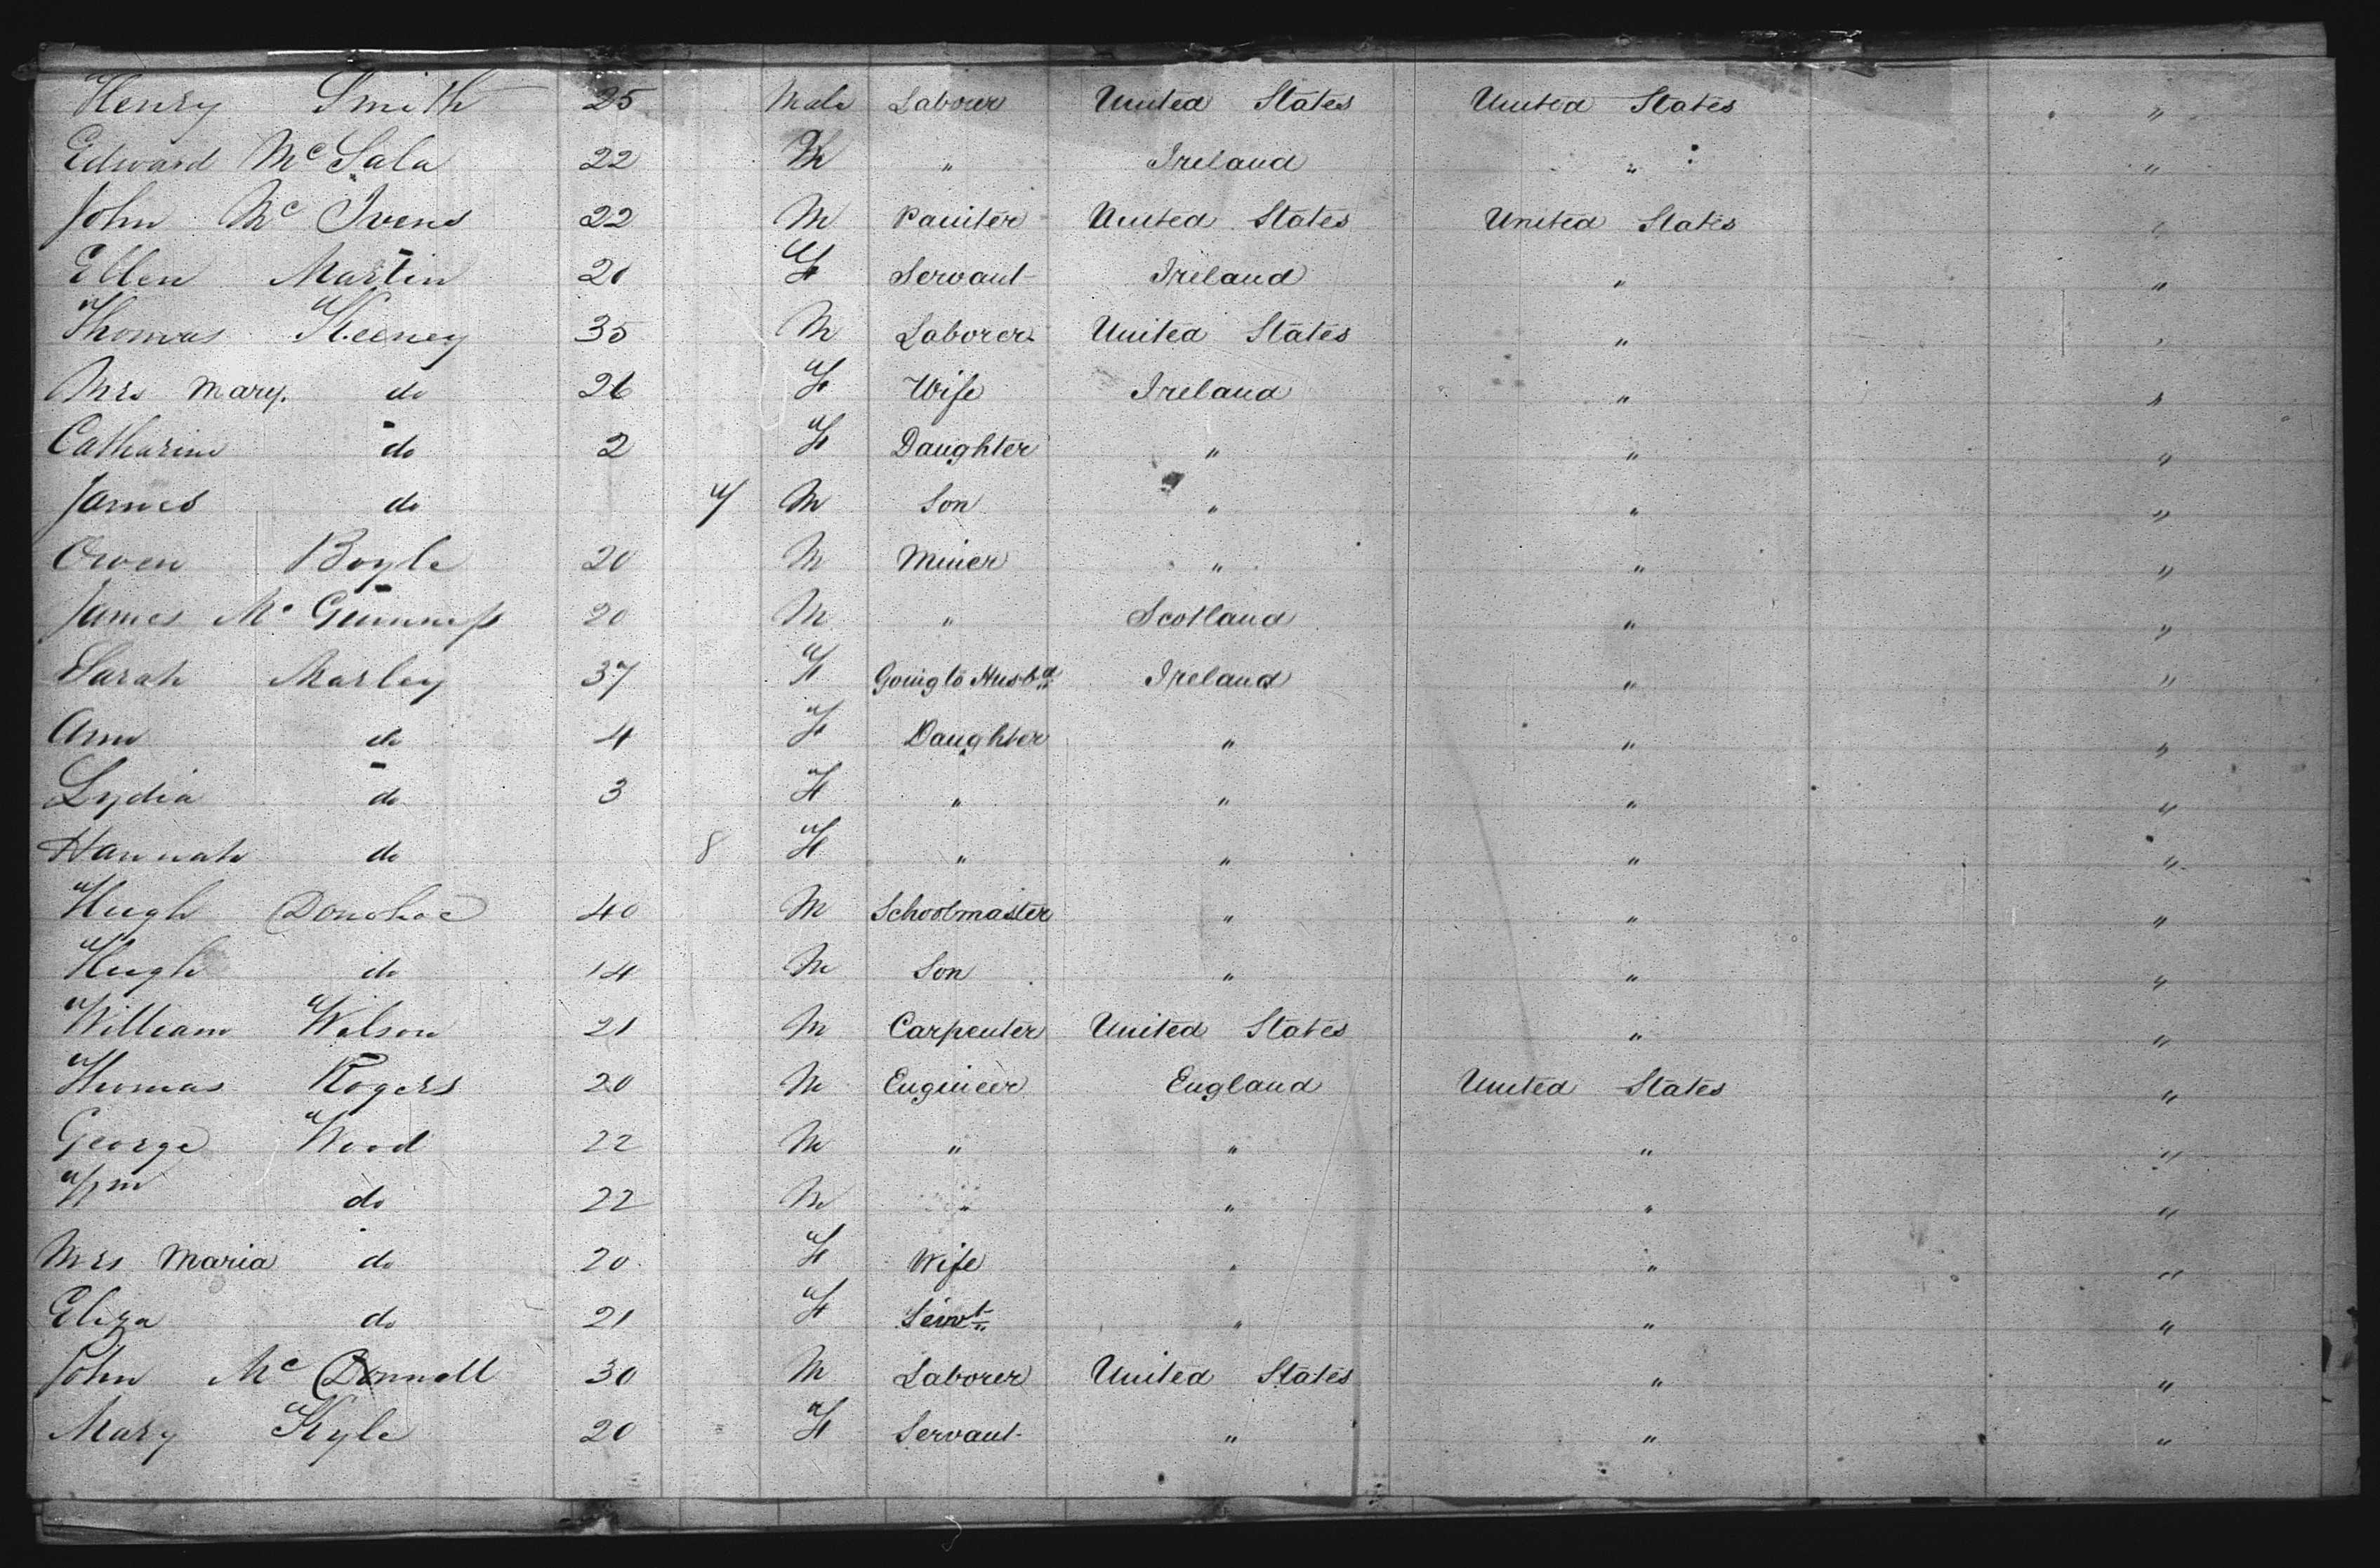 Henry Smith 25 Male Laborer United States United States "
Edward Mc Sala 22 M " Ireland " "
John Mc Ivens 22 M Painter United States United States "
Ellen Martin 20 F Servant Ireland " "
Thomas Keeney 35 M Laborer United States " "
Mrs Mary. do 26 F Wife Ireland " "
Catharine do 2 F Daughter " " "
James do M Son " " "
Owen Boyle 20 M Miner " " "
James Mc Guinness 20 M " Scotland " "
Sarah Marley 37 F Going to Husbd Ireland " "
Ann do 4 F Daughter " " "
Lydia do 3 F " " " "
Hannah do 8 F " " " "
Hugh Donohoe 40 M Schoolmaster " " "
Hugh do 14 M Son " " "
William Wilson 21 M Carpenter United States " "
Thomas Rogers 20 M Engineer England United States "
George Wood 22 M " " " "
Wm do 22 M " " " "
Mrs Maria do 20 F Wife " " "
Eliza do 21 F Servt " " "
John Mc Donnell 30 M Laborer United States " "
Mary Kyle 20 F Servant " " "